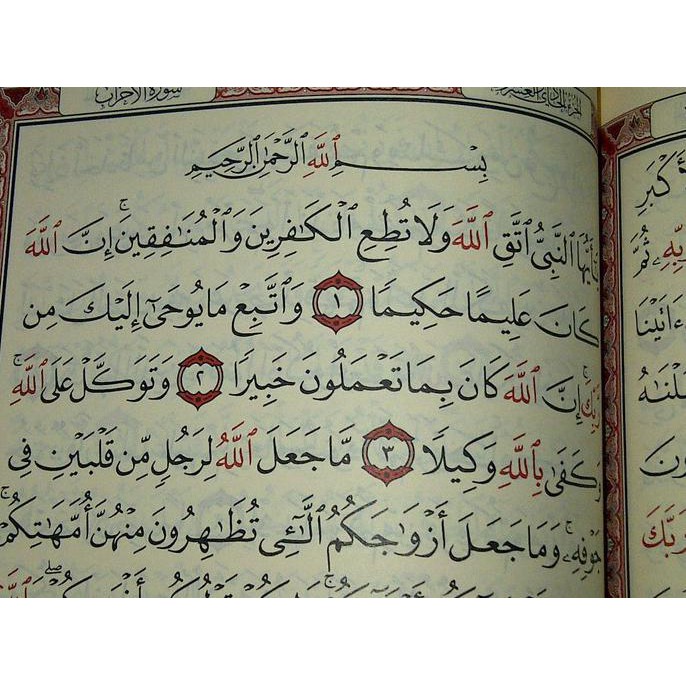 سُورَةُ الأَحْزَابِ
بِسْمِ ٱللَّهِ ٱلرَّحْمَٰنِ ٱلرَّحِيمِ
يَٰٓأَيُّهَا ٱلنَّبِىُّ ٱتَّقِ ٱللَّهَ وَلَا تُطِعِ ٱلْكَٰفِرِينَ وَٱلْمُنَٰفِقِينَ ۚ إِنَّ ٱللَّهَ
كَانَ عَلِيمًا حَكِيمًا ١ وَٱتَّبِعْ مَا يُوحَىٰٓ إِلَيْكَ مِن
رَّبِّكَ ۚ إِنَّ ٱللَّهَ كَانَ بِمَا تَعْمَلُونَ خَبِيرًا ٢ وَتَوَكَّلْ عَلَى ٱللَّهِ ۚ
وَكَفَىٰ بِٱللَّهِ وَكِيلًا ٣ مَّا جَعَلَ ٱللَّهُ لِرَجُلٍ مِّن قَلْبَيْنِ فِى
جَوْفِهِۦ ۚ وَمَا جَعَلَ أَزْوَٰجَكُمُ ٱلَّٰٓـِٔى تُظَٰهِرُونَ مِنْهُنَّ أُمَّهَٰتِكُمْ ۚ